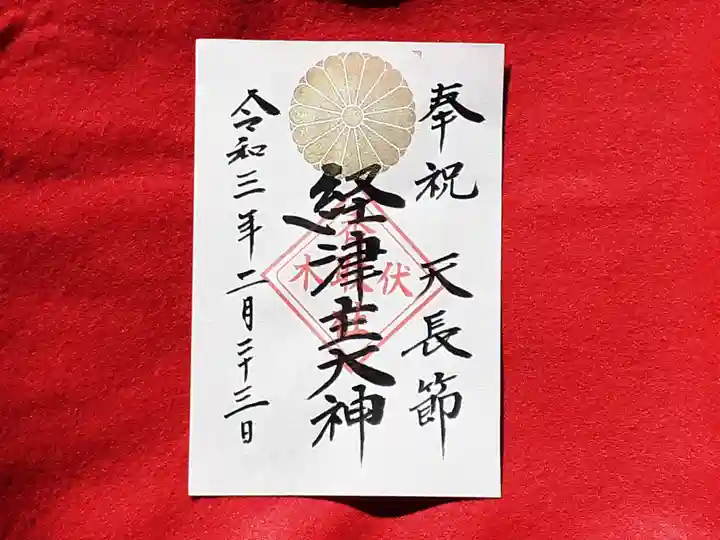 奉祝 天長節
経津主大神
木 伏
令和三年二月二十三日